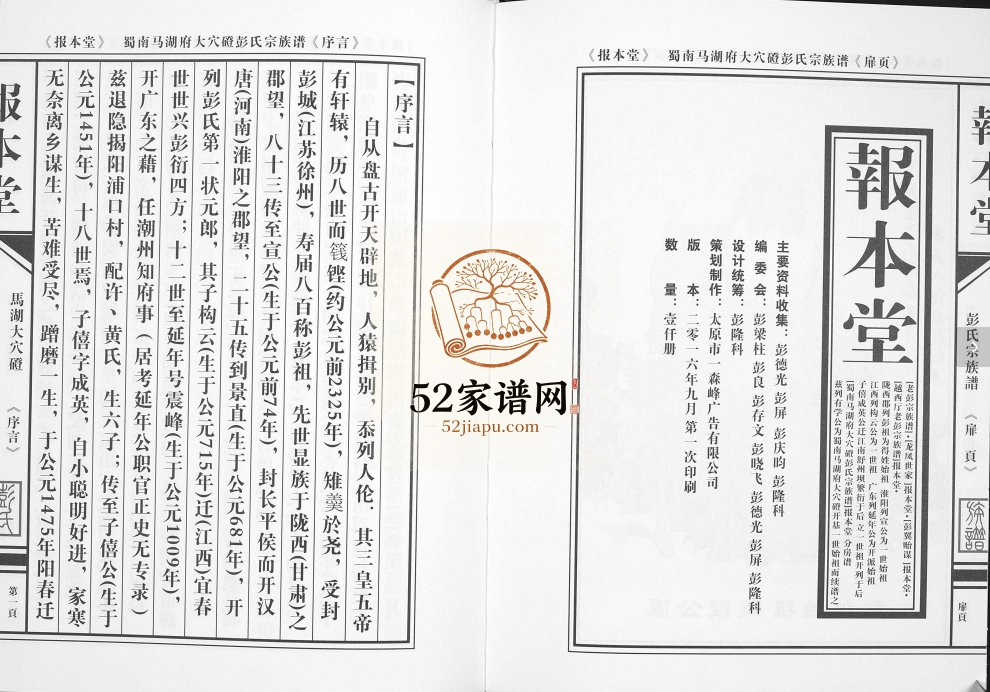 《报本堂》 蜀南马湖府大穴磴彭氏宗族谱《扉页》
報本堂
[老彭宗族谱]·[龙凤世家][报本堂]·[彭翼贻谋][报本堂]·
[越西厅老彭宗族谱[报本堂]·
陇西郡列彭祖为得姓始祖 淮阳列宣公为一世始祖
江西列构云公为一世祖 广东列延年公为开派始祖
子僖成英公迁江南舒州坝繁衍于后 立一世祖开列于后
[蜀南马湖府大穴磴彭氏宗族谱[报本堂 分房谱
兹列有学公为蜀南马湖府大穴磴开基一世始祖而续谱之
主要资料收集：彭德光 彭屏 彭庆昀 彭隆科
编委会：彭梁柱 彭良 彭存文 彭晓飞 彭德光 彭屏 彭隆科
设计统筹：彭隆科
策划制作：太原市一森峰广告有限公司
版 本：二零一六年九月第一次印刷
数 量：壹仟册
報本堂
彭氏宗族譜
《扉頁》
族譜
扉頁
《报本堂》 蜀南马湖府大穴磴彭氏宗族谱《序言》
【序言】
自从盘古开天辟地，人猿揖别，忝列人伦．其三皇五帝
有轩辕，历八世而篯铿(约公元前2325年)，雉羹於尧，受封
彭城(江苏徐州)，寿届八百称彭祖，先世显族于陇西(甘肃)之
郡望，八十三传至宣公(生于公元前74年)，封长平侯而开汉
唐(河南)淮阳之郡望，二十五传到景直(生于公元681年)，开
列彭氏第一状元郎，其子构云生于公元715年)迁(江西)宜春
世世兴彭衍四方；十二世至延年号震峰(生于公元1009年)，
开广东之藉，任潮州知府事（居考延年公职官正史无专录）
兹退隐揭阳浦口村，配许、黄氏，生六子；传至子僖公(生于
公元1451年)，十八世焉，子僖字成英，自小聪明好进，家寒
无奈离乡谋生，苦难受尽，蹭磨一生，于公元1475年阳春迁
報本堂
馬湖大穴磴
《序言》
彭氏
第一頁
52家谱网
52jiapu.com